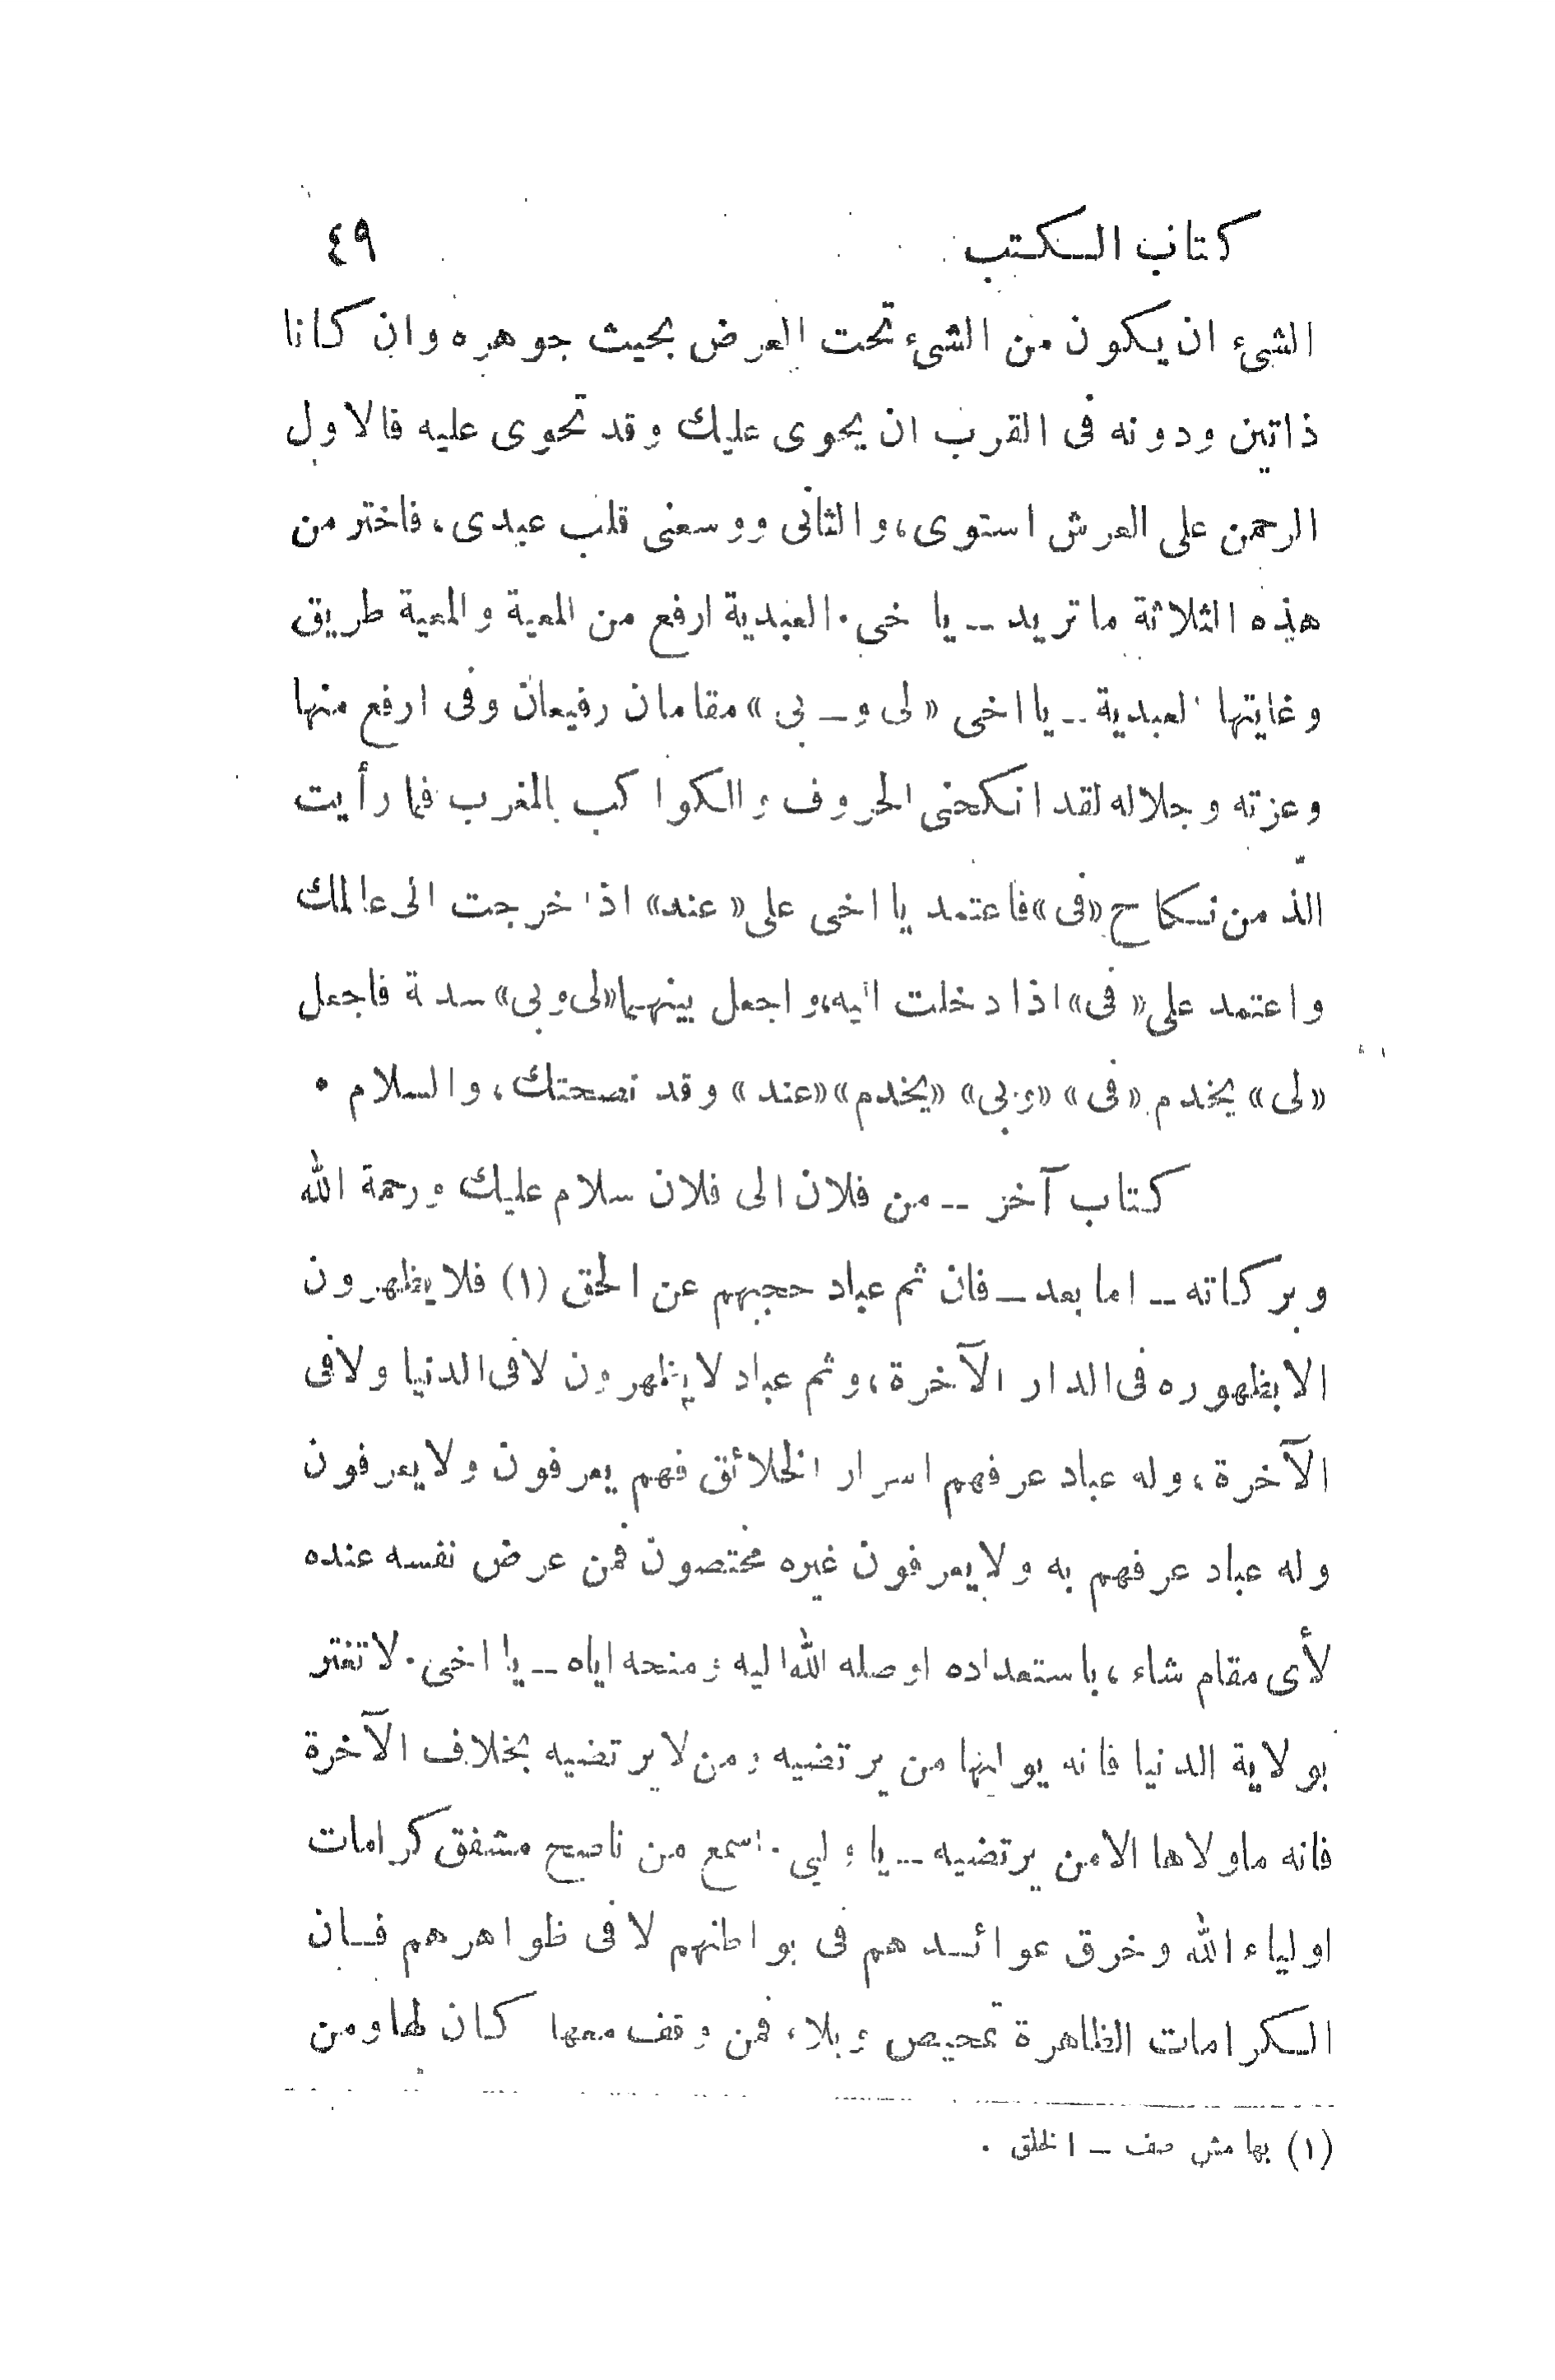 كتاب الكتب ٤٩
الشىء ان يكون من الشىء تحت العرض بحيث جوهره وان كانا
ذاتين ودونه فى القرب ان يحوى عليك وقد تحوى عليه فالاول
الرحمن على العرش استوى، والثانى ووسعنى قلب عبدى، فاختر من
هذه الثلاثة ما تريد -- يا خى. العبدية ارفع من المعية والمعية طريق
وغايتها العبدية -- يا اخى «لى و - بى» مقامان رفيعان وفى ارفع منها
وعزته وجلاله لقد انكحنى الحروف والكواكب بالمغرب فما رأيت
الذ من نكاح «فى» فاعتمد يا اخى على «عند» اذا خرجت الى عالمك
واعتمد على «فى» اذا دخلت اليه، واجعل بينهما «لى وبى» سدة فاجعل
«لى» يخدم «فى» «وبى» «يخدم» «عند» وقد نصحتك، والسلام .
كتاب آخر -- من فلان الى فلان سلام عليك ورحمة الله
وبركاته -- اما بعد - فان ثم عباد حجبهم عن الحق (١) فلا يظهرون
الا بظهوره فى الدار الآخرة، وثم عباد لا يظهرون لا فى الدنيا ولا فى
الآخرة، وله عباد عرفهم اسرار الخلائق فهم يعرفون ولا يعرفون
وله عباد عرفهم به ولا يعرفون غيره مختصون فمن عرض نفسه عنده
لأى مقام شاء، باستعداده اوصله الله اليه ومنحه اياه -- يا اخى. لا تغتر
بولاية الدنيا فانه يوليها من يرتضيه ومن لا يرتضيه بخلاف الآخرة
فانه ماولاها الا من يرتضيه -- يا ولى. اسمع من ناصح مشفق كرامات
اولياء الله وخرق عوائدهم فى بواطنهم لا فى ظواهرهم فان
الكرامات الظاهرة تمحيص وبلاء فمن وقف معها كان لها ومن
(١) بهامش صف - الخلق .